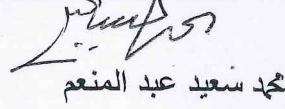 محمد سعيد عبد المنعم